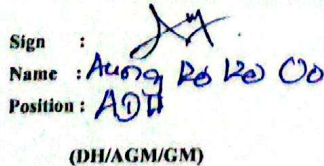 Sign :
Name : Aung Ko Ko Oo
Position : ADH
(DH/AGM/GM)